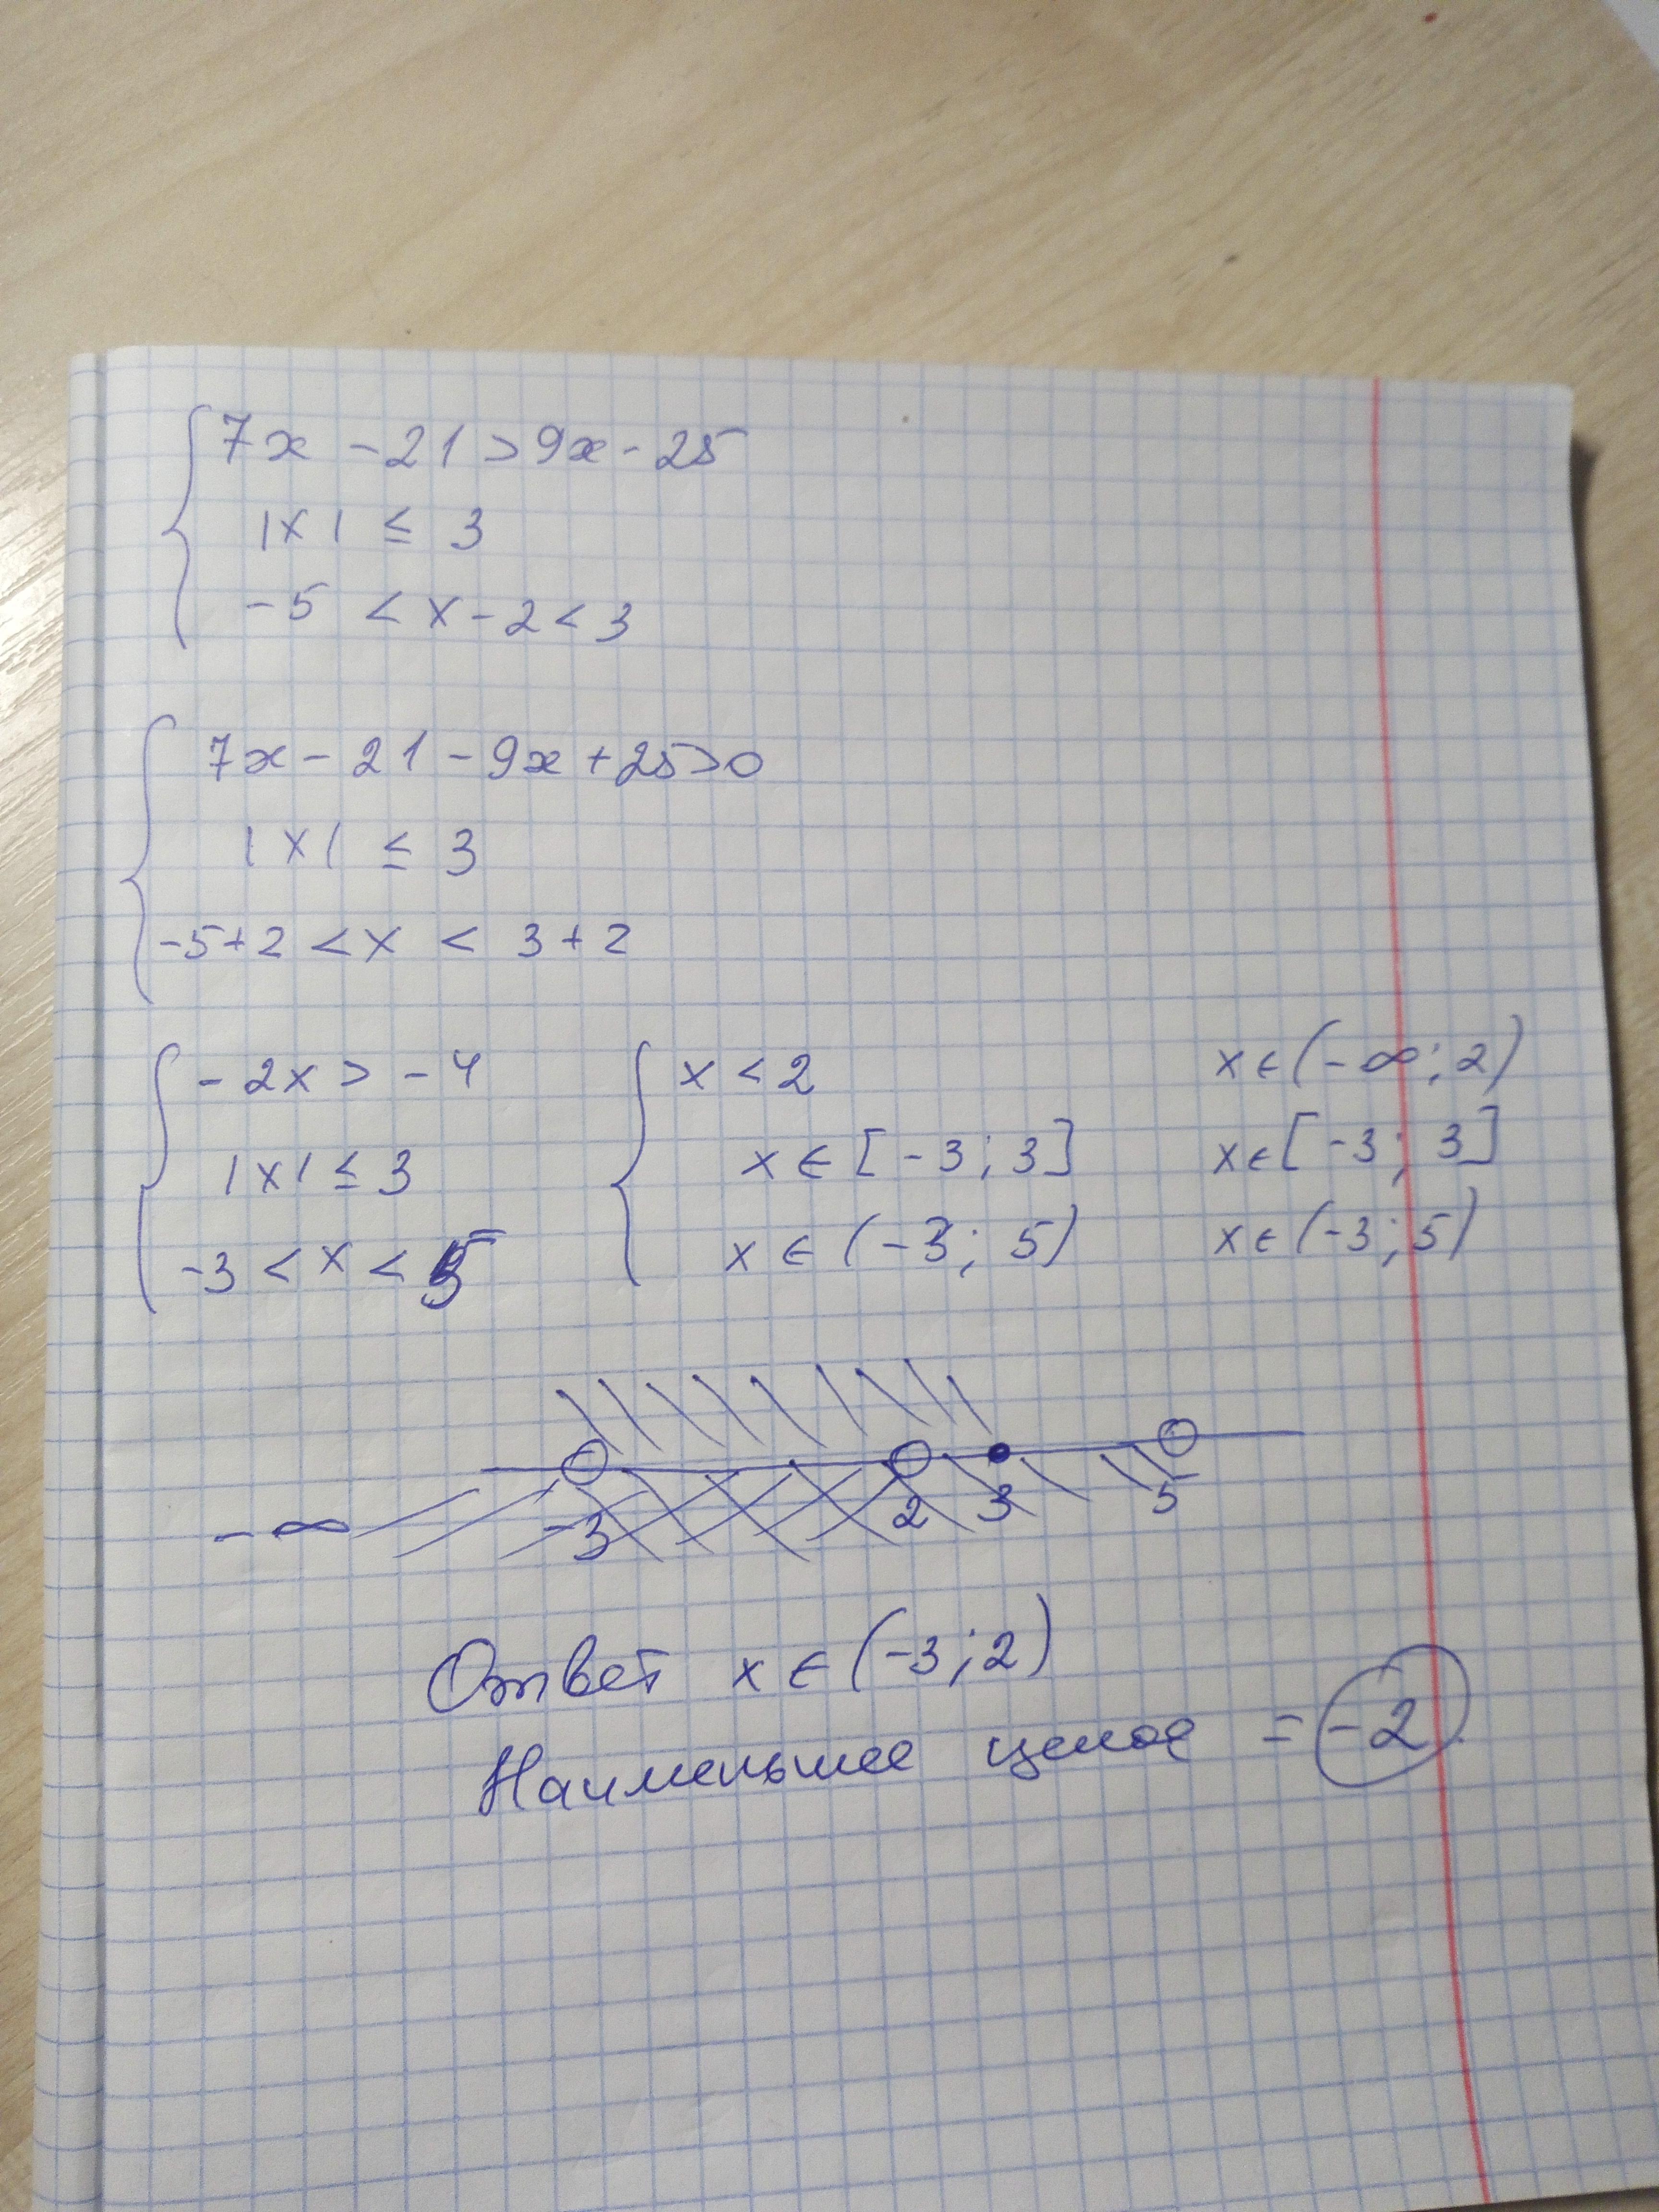 7x - 21 > 9x - 25
|x| ≤ 3
-5 < x - 2 < 3
7x - 21 - 9x + 25 > 0
|x| ≤ 3
-5 + 2 < x < 3 + 2
-2x > -4 x < 2 x ∈ (-∞; 2)
|x| ≤ 3 x ∈ [-3; 3] x ∈ [-3; 3]
-3 < x < 5 x ∈ (-3; 5) x ∈ (-3; 5)
-∞ -3 2 3 5
Ответ x ∈ (-3; 2)
Наименьшее целое = -2